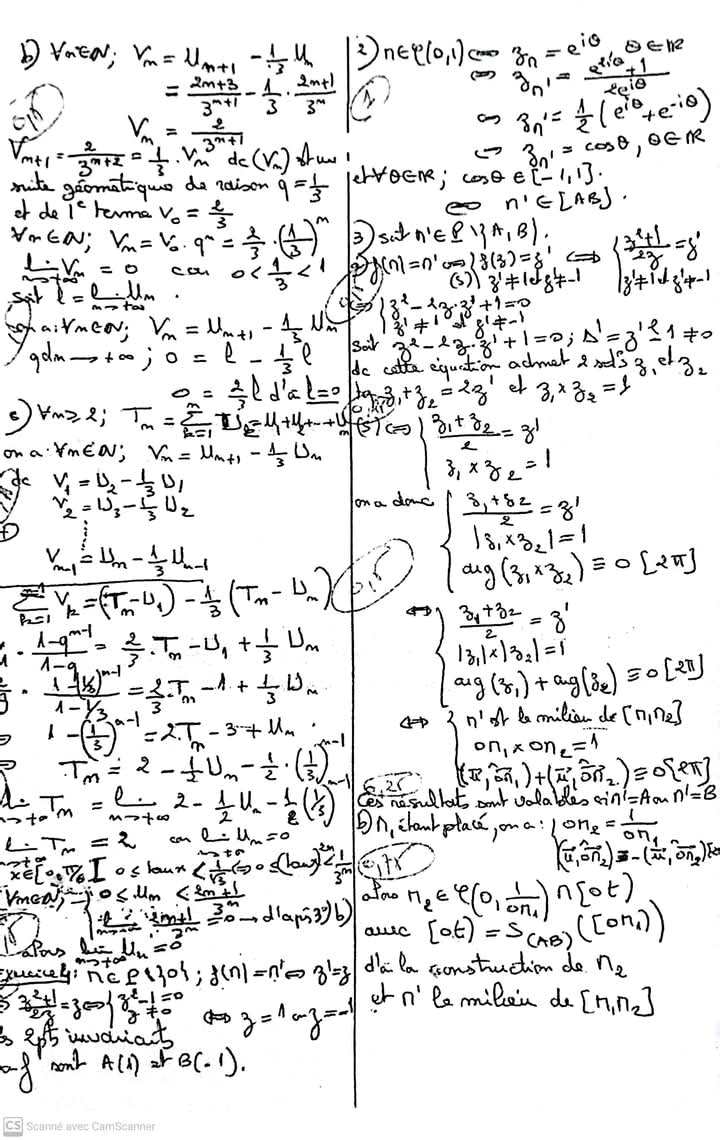 b) ∀n∈ℕ; Vn = U_{n+1} - 1/3 Un
= (2n+3)/3^{n+1} - 1/3 · (2n+1)/3^n
Vn = 2/3^{n+1}
V_{n+1} = 2/3^{n+2} = 1/3 · Vn dc (Vn) est une
suite géométrique de raison q = 1/3
et de 1e terme V0 = 2/3
∀n∈ℕ; Vn = V0 · q^n = 2/3 · (1/3)^n
lim Vn = 0 car 0 < 1/3 < 1
n→+∞
soit l = lim Un
n→+∞
on a: ∀n∈ℕ; Vn = U_{n+1} - 1/3 Un
qd n → +∞; 0 = l - 1/3 l
0 = 2/3 l d'où l = 0
c) ∀n ≥ 2; Tn = Σ_{k=1}^{n} Uk = U1 + U2 + ... + Un
on a: ∀n∈ℕ; Vn = U_{n+1} - 1/3 Un
dc V1 = U2 - 1/3 U1
V2 = U3 - 1/3 U2
V_{n-1} = Un - 1/3 U_{n-1}
Σ_{k=1}^{n-1} Vk = (Tn - U1) - 1/3 (Tn - Un)
· (1-q^{n-1})/(1-q) = 2/3 · Tn - U1 + 1/3 Un
· (1-(1/3)^{n-1})/(1-1/3) = 2/3 · Tn - 1 + 1/3 Un
1 - (1/3)^{n-1} = 2·Tn - 3 + Un
Tn = 2 - 1/2 Un - 1/2 · (1/3)^{n-1}
lim Tn = lim 2 - 1/2 Un - 1/2 (1/3)^{n-1}
n→+∞ n→+∞
lim Tn = 2 car lim Un = 0
n→+∞ n→+∞
x∈[0, π/6[ 0 ≤ tan x < 1/√3 ⇒ 0 ≤ (tan x)^{2n} < 1/3^n
∀n∈ℕ; 0 ≤ Un < (2n+1)/3^n
lim (2n+1)/3^n = 0 → d'après 3°) b)
n→+∞
alors lim Un = 0
n→+∞
Exercice 4: M∈P\{0}; f(M) = M' ⇔ z' = z
(z²+1)/2z = z ⇔ { z² - 1 = 0
z ≠ 0
⇔ z = 1 ou z = -1
2 pts invariants
f sont A(1) et B(-1).
2) M∈𝒞(0,1) ⇔ z_M = e^{iθ} θ∈ℝ
⇔ z_M' = (e^{2iθ}+1)/2e^{iθ}
1
⇔ z_M' = 1/2 (e^{iθ} + e^{-iθ})
⇔ z_M' = cosθ, θ∈ℝ
et ∀θ∈ℝ; cosθ ∈ [-1,1].
⇔ M' ∈ [AB].
3) soit M'∈P\{A,B}.
a) f(M) = M' ⇔ { f(z) = z' ⇔ { (z²+1)/2z = z'
(S) z' ≠ 1 et z' ≠ -1 z' ≠ 1 et z' ≠ -1
⇔ { z² - 2z·z' + 1 = 0
z' ≠ 1 et z' ≠ -1
soit z² - 2z·z' + 1 = 0; Δ' = z'² - 1 ≠ 0
dc cette équation admet 2 sols z1 et z2
tq z1 + z2 = 2z' et z1 × z2 = 1
(S) ⇔ { (z1+z2)/2 = z'
z1 × z2 = 1
on a donc { (z1+z2)/2 = z'
|z1 × z2| = 1
arg(z1 × z2) ≡ 0 [2π]
0,5
⇔ { (z1+z2)/2 = z'
|z1| × |z2| = 1
arg(z1) + arg(z2) ≡ 0 [2π]
⇔ { M' est le milieu de [M1M2]
OM1 × OM2 = 1
(u, OM1) + (u, OM2) ≡ 0 [2π]
0,25
Ces résultats sont valables si M' = A ou M' = B
b) M1 étant placé, on a: { OM2 = 1/OM1
(u, OM2) ≡ -(u, OM1) [2π]
0,75
alors M2∈𝒞(0, 1/OM1) ∩ [ot)
avec [ot) = S_(AB) ([OM1))
d'où la construction de M2
et M' le milieu de [M1M2]
CS Scanné avec CamScanner